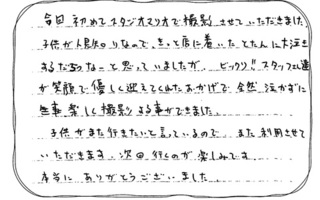 今回初めてスタジオマリオで撮影させていただきました。
子供が人見知りなので、きっと店に着いたとたんに大泣き
するだろうなーと思っていましたが、ビックリ!!スタッフさん達
が笑顔で優しく迎えてくれたおかげで全然泣かずに
無事、楽しく撮影する事ができました。
子供がまた行きたいと言っているので、また利用させて
いただきます。次回行くのが楽しみです。
本当にありがとうございました。